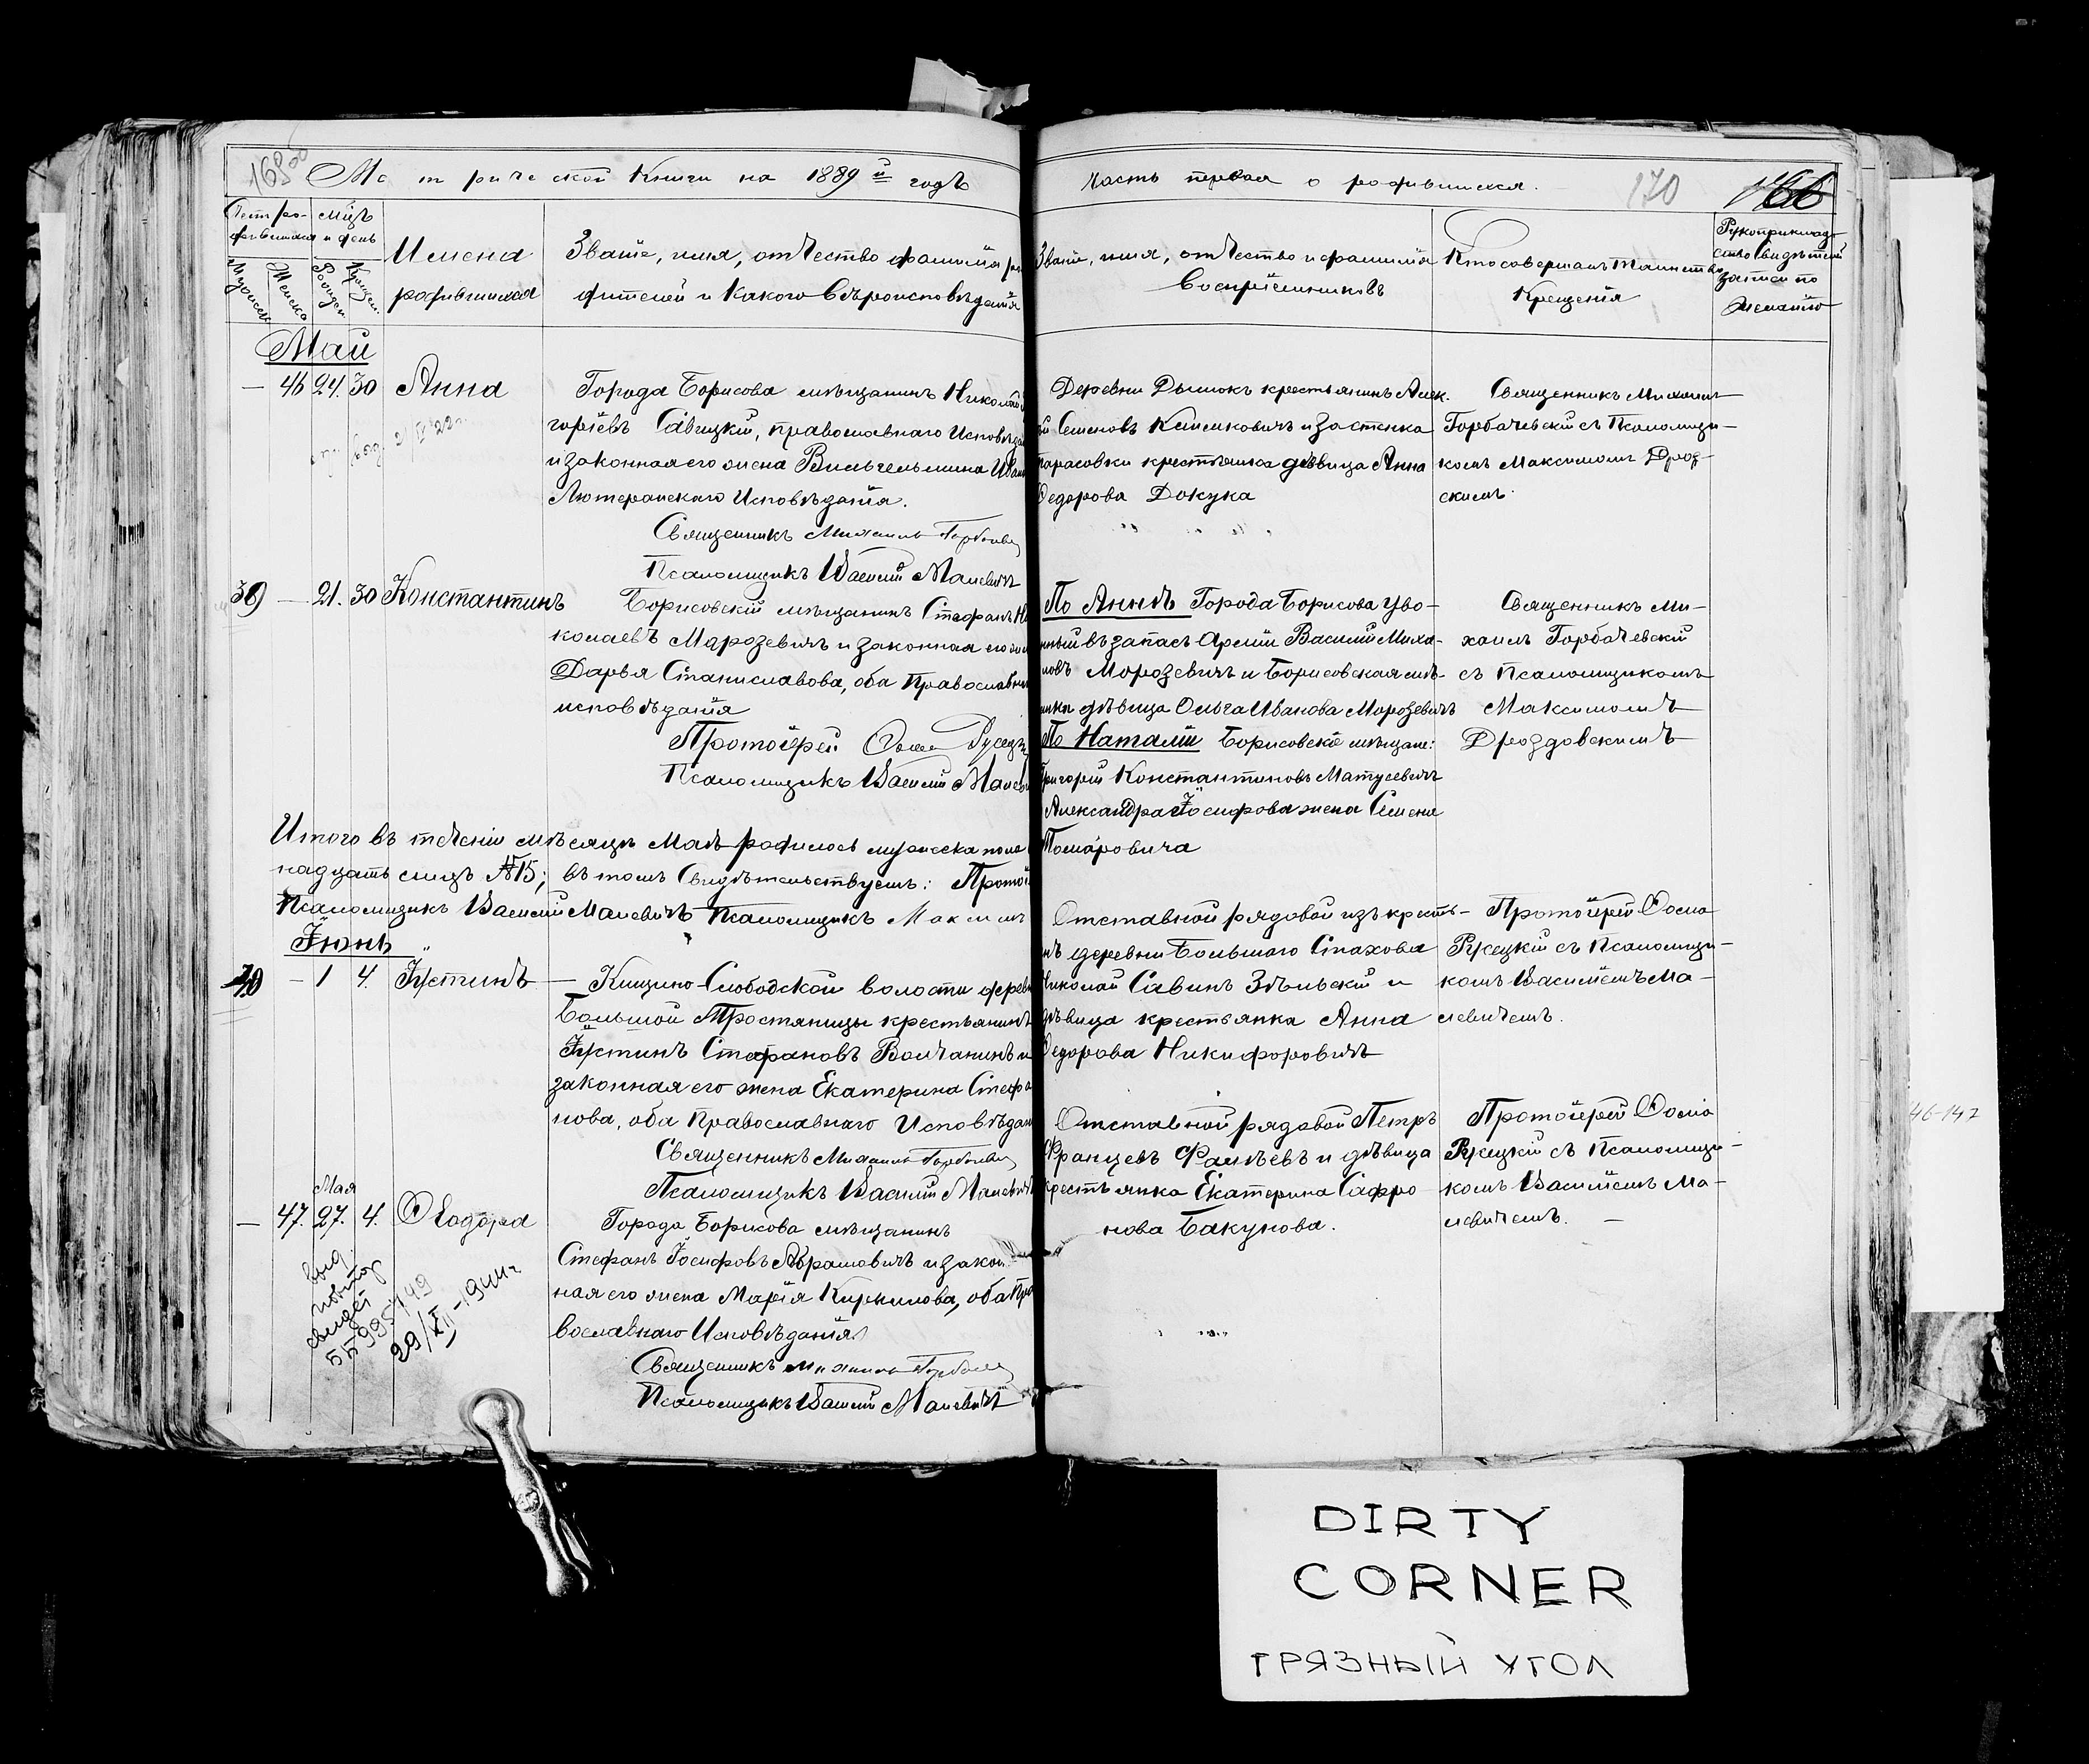 Метрической Книги на 1889й годъ
Часть первая о родившихся.
170
Счетъ ро-
дившихся
Мцъ
и день
Мужеск.
Женска
Рожден.
Крещен.
Имена
родившихся
Званіе, имя, отчество фамилія ро
дителей и какого вѣроисповѣданія
Званіе, имя, отчество и фамилія
воспріемниковъ
Кто совершалъ таинство
Крещенія
Рукоприклад-
ство свидѣтелей
записи по
желанію
Май
— 46 24. 30 Анна
Города Борисова мѣщанинъ Николай
горіевъ Савицкій, православнаго Исповѣда
и законная его жена Вильгельмина Иван
Лютеранскаго Исповѣданія.
Священникъ Михаилъ Горбачев
Псаломщикъ Василій Малевичъ
Деревни Дымокъ крестьянинъ Алек.
ѣй Семеновъ Климковичъ и застѣнка
тарасовки крестьянка дѣвица Анна
Федорова Докука
Священникъ Михаилъ
Горбачевскій съ Псаломщи-
комъ Максимомъ Дроз-
скимъ.
39 — 21. 30 Константинъ
Борисовскій мѣщанинъ Стефанъ Ни
колаевъ Марозевичъ и законная его жена
Дарья Станиславова, оба Православна
исповѣданія
Протоіерей
Псаломщикъ Василій Малеви
По Аннѣ Города Борисова уво-
нный въ запасъ Арміи Василій Миха-
ловъ Морозевичъ и Борисовская мѣ-
анка дѣвица Ольга Иванова Морозевичъ
По Наталіи Борисовскіе мѣщане:
Григорій Константиновъ Матусевичъ
Александра Іосифова жена Семена
Священникъ Ми-
хаилъ Горбачевскій
съ Псаломщикомъ
Максимомъ
Дроздовскимъ
Итого въ теченіи мѣсяца Мая родилось мужеска пола
надцать лицъ №15; въ томъ свидѣтельствуемъ: Протоі
Псаломщикъ Василій Малевичъ Псаломщикъ Максимъ
Іюнь
40 — 1 4. Іустинъ
Кищино-Слободской волости дерев
Большой Тростяницы крестьянинъ
Іустинъ Стефановъ Волчанинъ и
законная его жена Екатерина Стефа
нова, оба Православнаго Исповѣдан
Священникъ Михаилъ Горбачев
Псаломщикъ Василій Малевичъ
Отставной рядовой изъ кресть-
нъ деревни Большаго Стахова
Николай Савинъ Зѣльскій и
дѣвица крестьянка Анна
Федорова Никифоровичъ
Протоіерей Фома
Русецкій съ Псаломщи-
комъ Василіемъ Ма-
левичемъ.
Мая
— 47. 27. 4. Ѳеодора
Города Борисова мѣщанинъ
Стефанъ Іосифовъ Абрамовичъ и закон
ная его жена Марія Кирилова, оба Пра
вославнаго Исповѣданія
Священникъ Михаилъ
Псаломщикъ Василій Малевичъ
Отставной рядовой Петръ
Францевъ Фалѣевъ и дѣвица
крестьянка Екатерина Сафро
нова Бакунова.
Протоіерей Фома
Русецкій съ Псаломщи-
комъ Василіемъ Ма-
левичемъ.
выд.
повтор
свидет
29/XII-1944г
46-147
DIRTY
CORNER
ГРЯЗНЫЙ УГОЛ